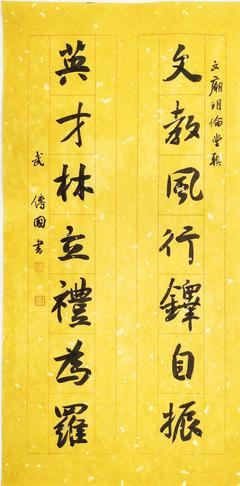 文廟明倫堂聯
文教風行鐸自振
英才林立禮為羅
武傳國書